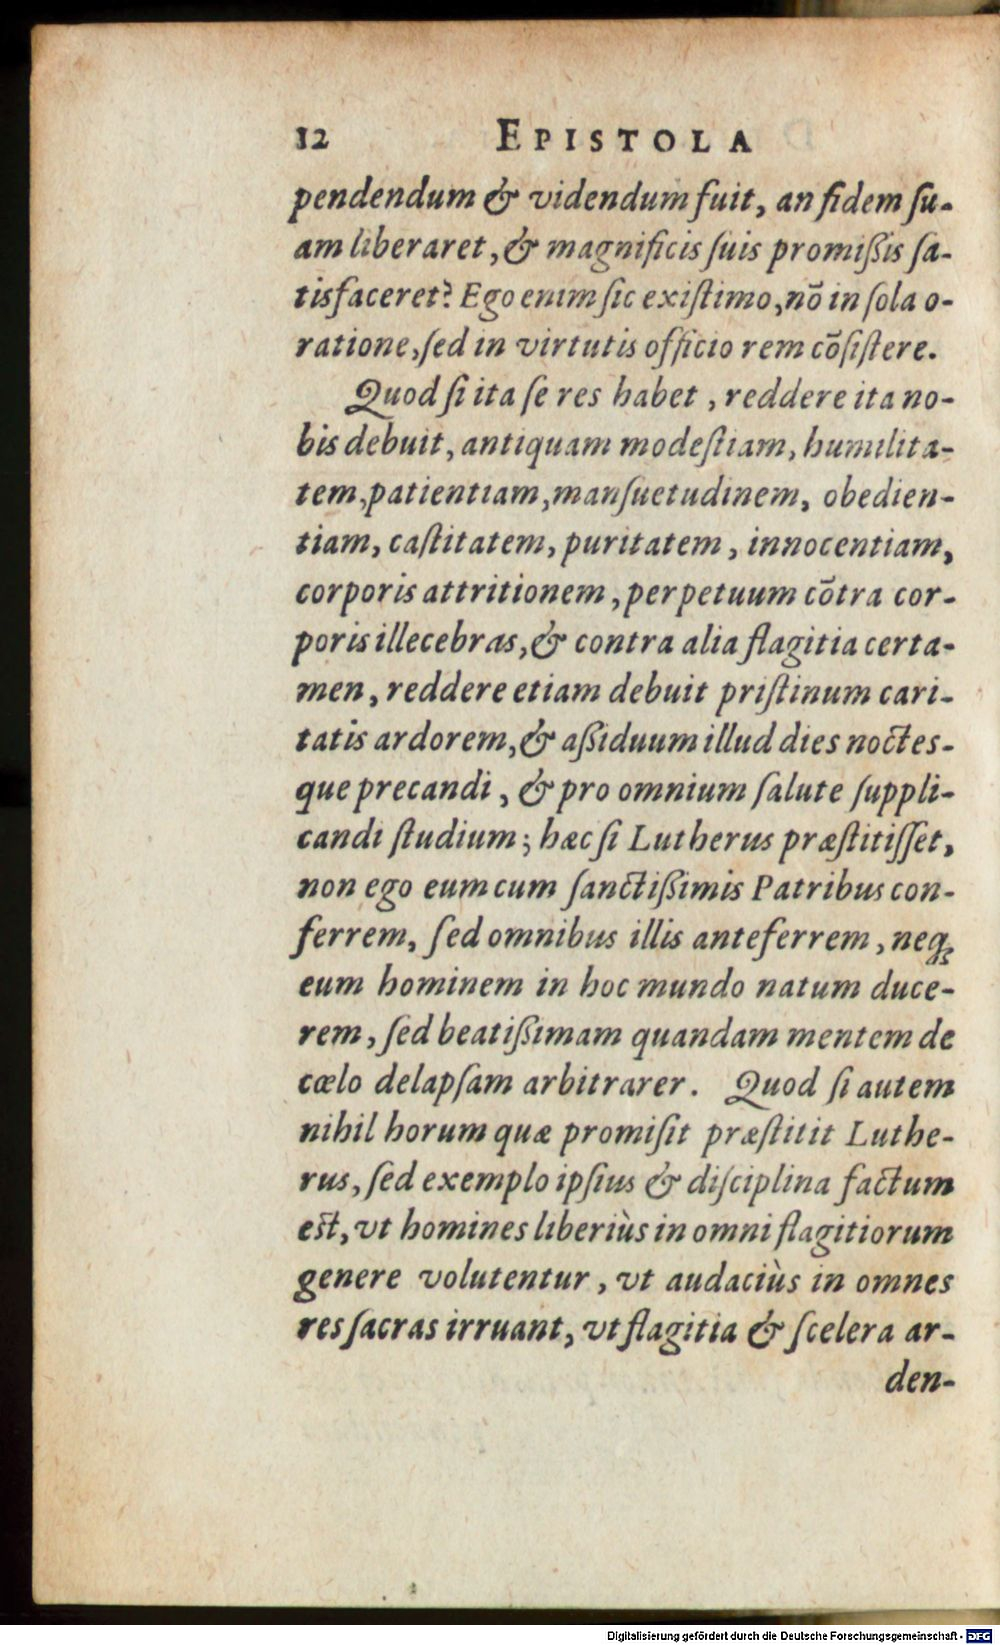 12 EPISTOLA
pendendum & videndum fuit, an fidem ſu-
am liberaret, & magnificis ſuis promiſſis ſa-
tisfaceret? Ego enim ſic exiſtimo, nō in ſola o-
ratione, ſed in virtutis officio rem cōſiſtere.
Quod ſi ita ſe res habet, reddere ita no-
bis debuit, antiquam modeſtiam, humilita-
tem, patientiam, manſuetudinem, obedien-
tiam, caſtitatem, puritatem, innocentiam,
corporis attritionem, perpetuum cōtra cor-
poris illecebras, & contra alia flagitia certa-
men, reddere etiam debuit priſtinum cari-
tatis ardorem, & aſſiduum illud dies noctes-
que precandi, & pro omnium ſalute ſuppli-
candi ſtudium; hæc ſi Lutherus præſtitiſſet,
non ego eum cum ſanctiſſimis Patribus con-
ferrem, ſed omnibus illis anteferrem, neqꝫ
eum hominem in hoc mundo natum duce-
rem, ſed beatiſſimam quandam mentem de
cœlo delapſam arbitrarer. Quod ſi autem
nihil horum quæ promiſit præſtitit Luthe-
rus, ſed exemplo ipſius & diſciplina factum
eſt, vt homines liberiùs in omni flagitiorum
genere volutentur, vt audaciùs in omnes
res ſacras irruant, vt flagitia & ſcelera ar-
den-
Digitalisierung gefördert durch die Deutsche Forschungsgemeinschaft - DFG